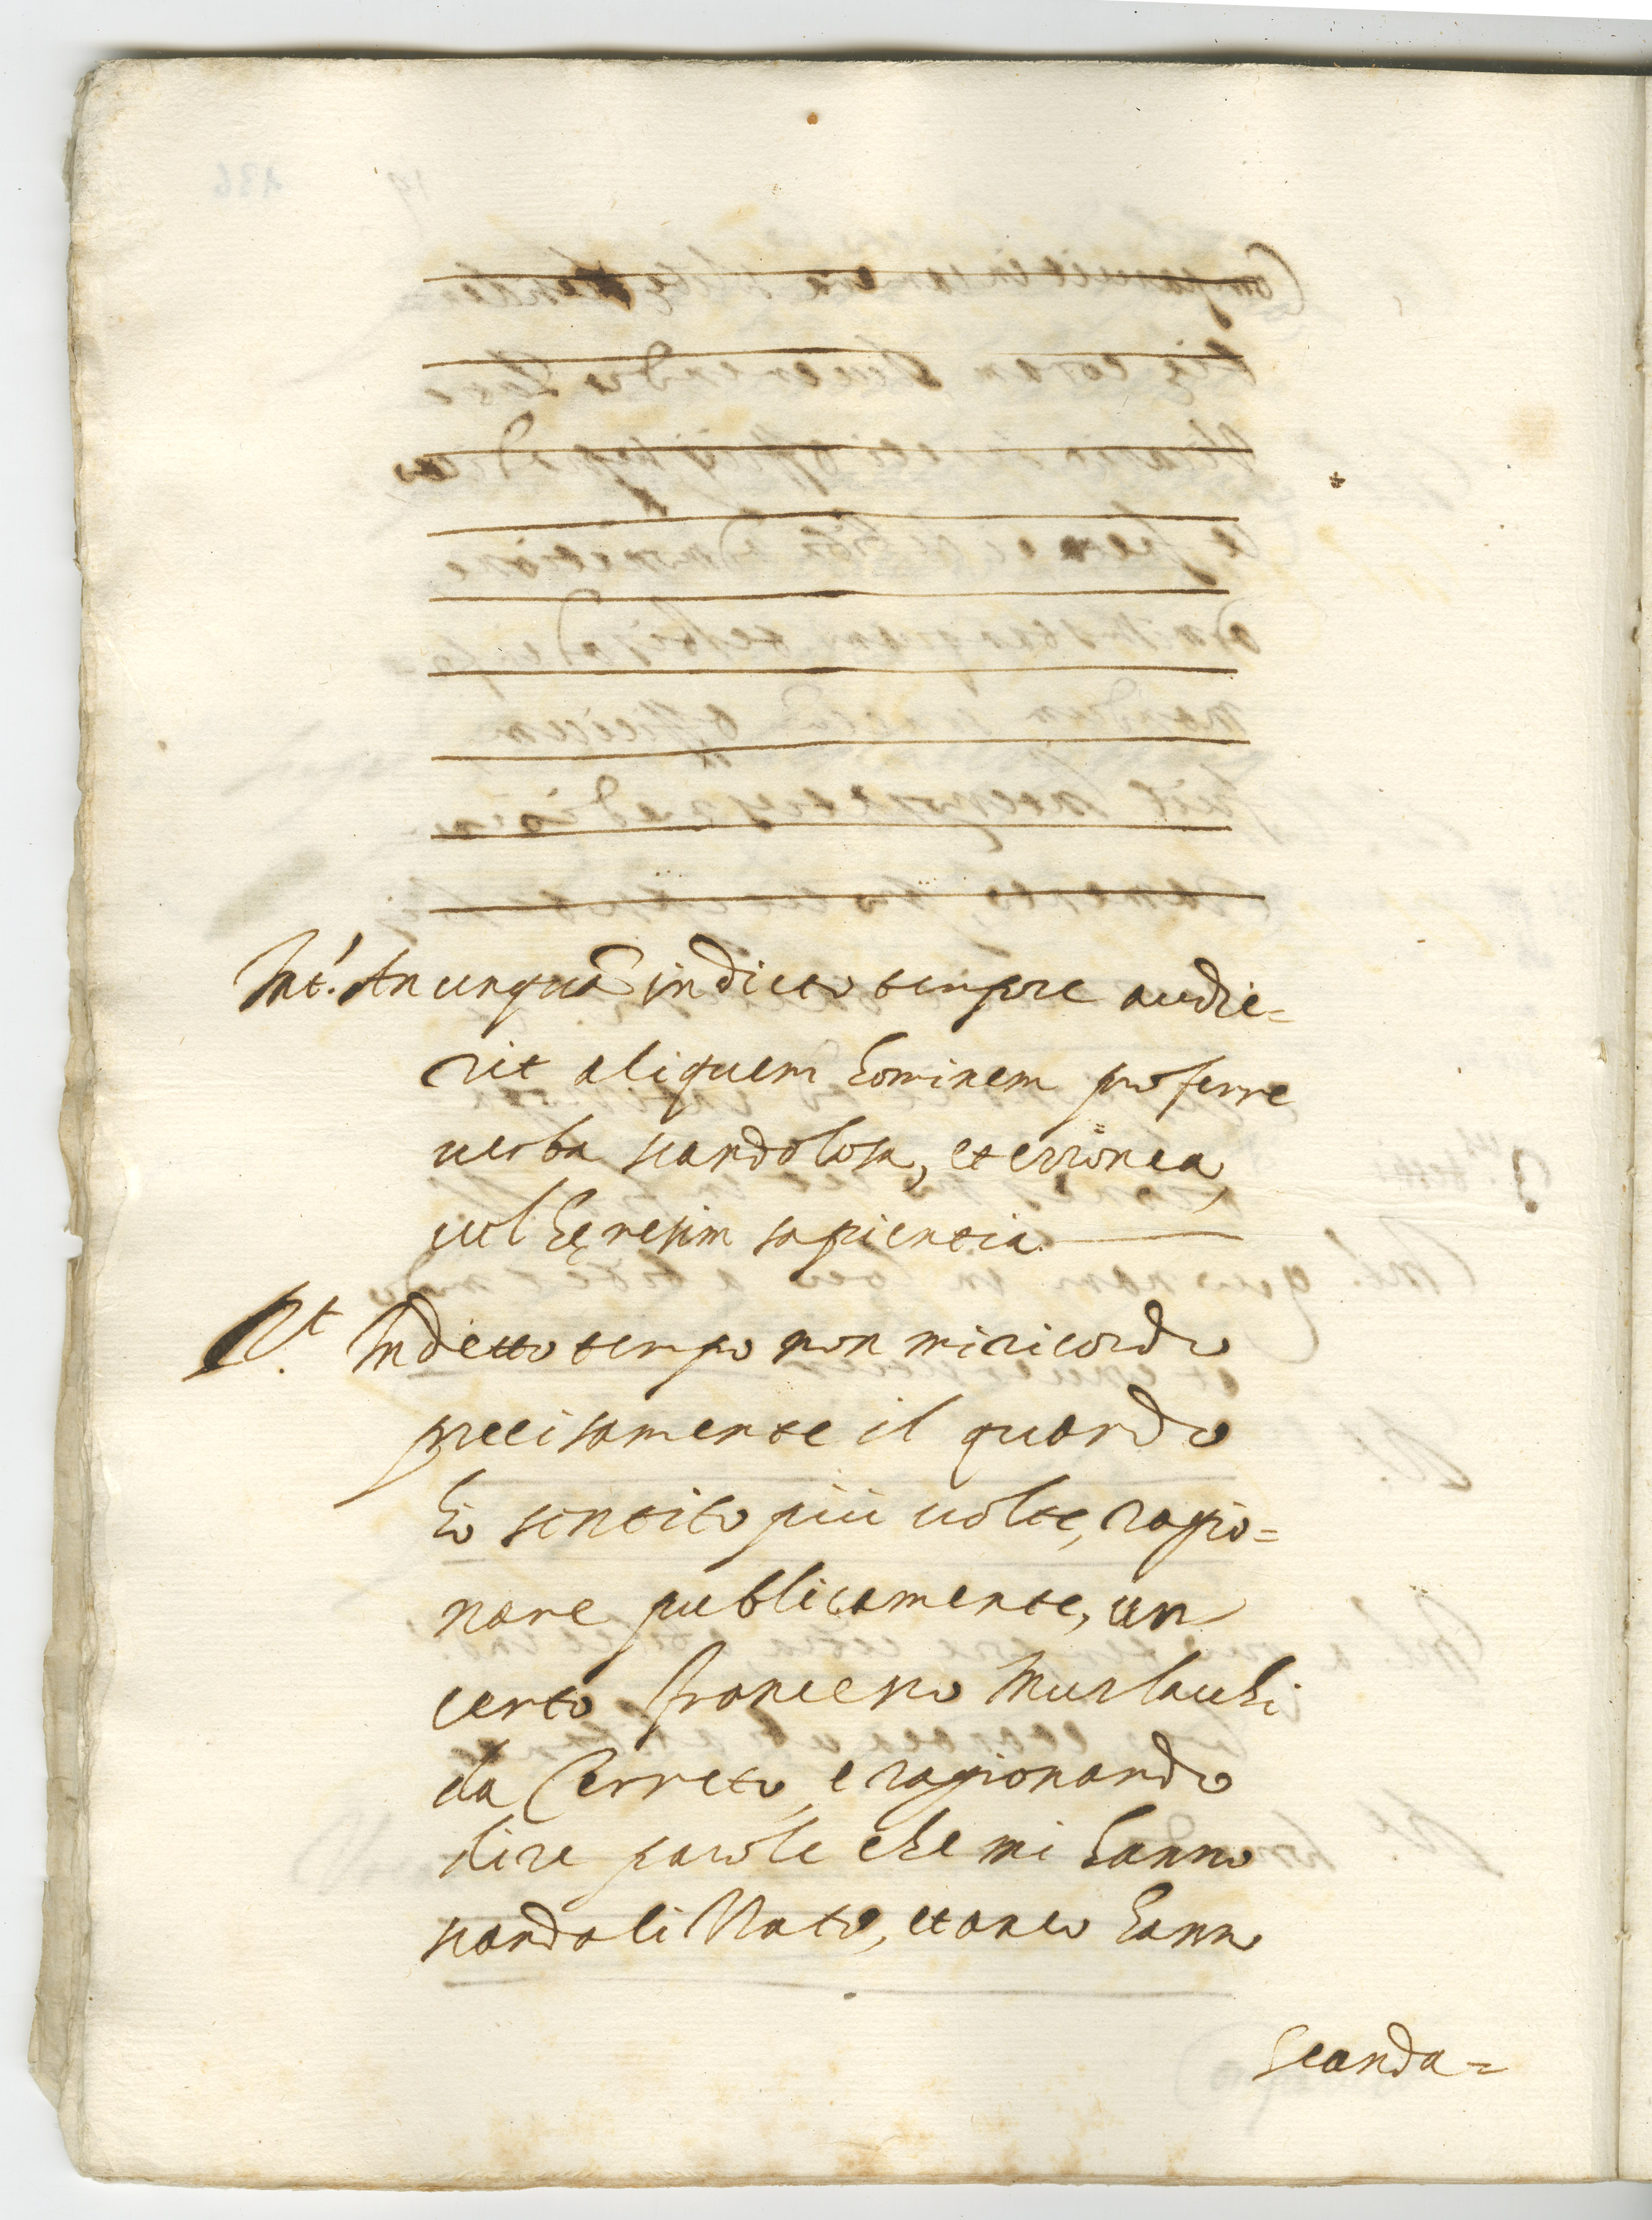 Int.' An unquā in dicto tempore audie=
rit aliquem hominem proferre
uerba scandolosa, et erronea,
uel hęresim sapientia
Rt. In detto tempo non mi ricordo
precisamente il quando
hò sentito più uolte, ragio=
nare publicamente, un
certo francesco
da Cerreto, e ragionando
dire parole che mi hanno
scandaliZZato, et anco hanno
scanda=